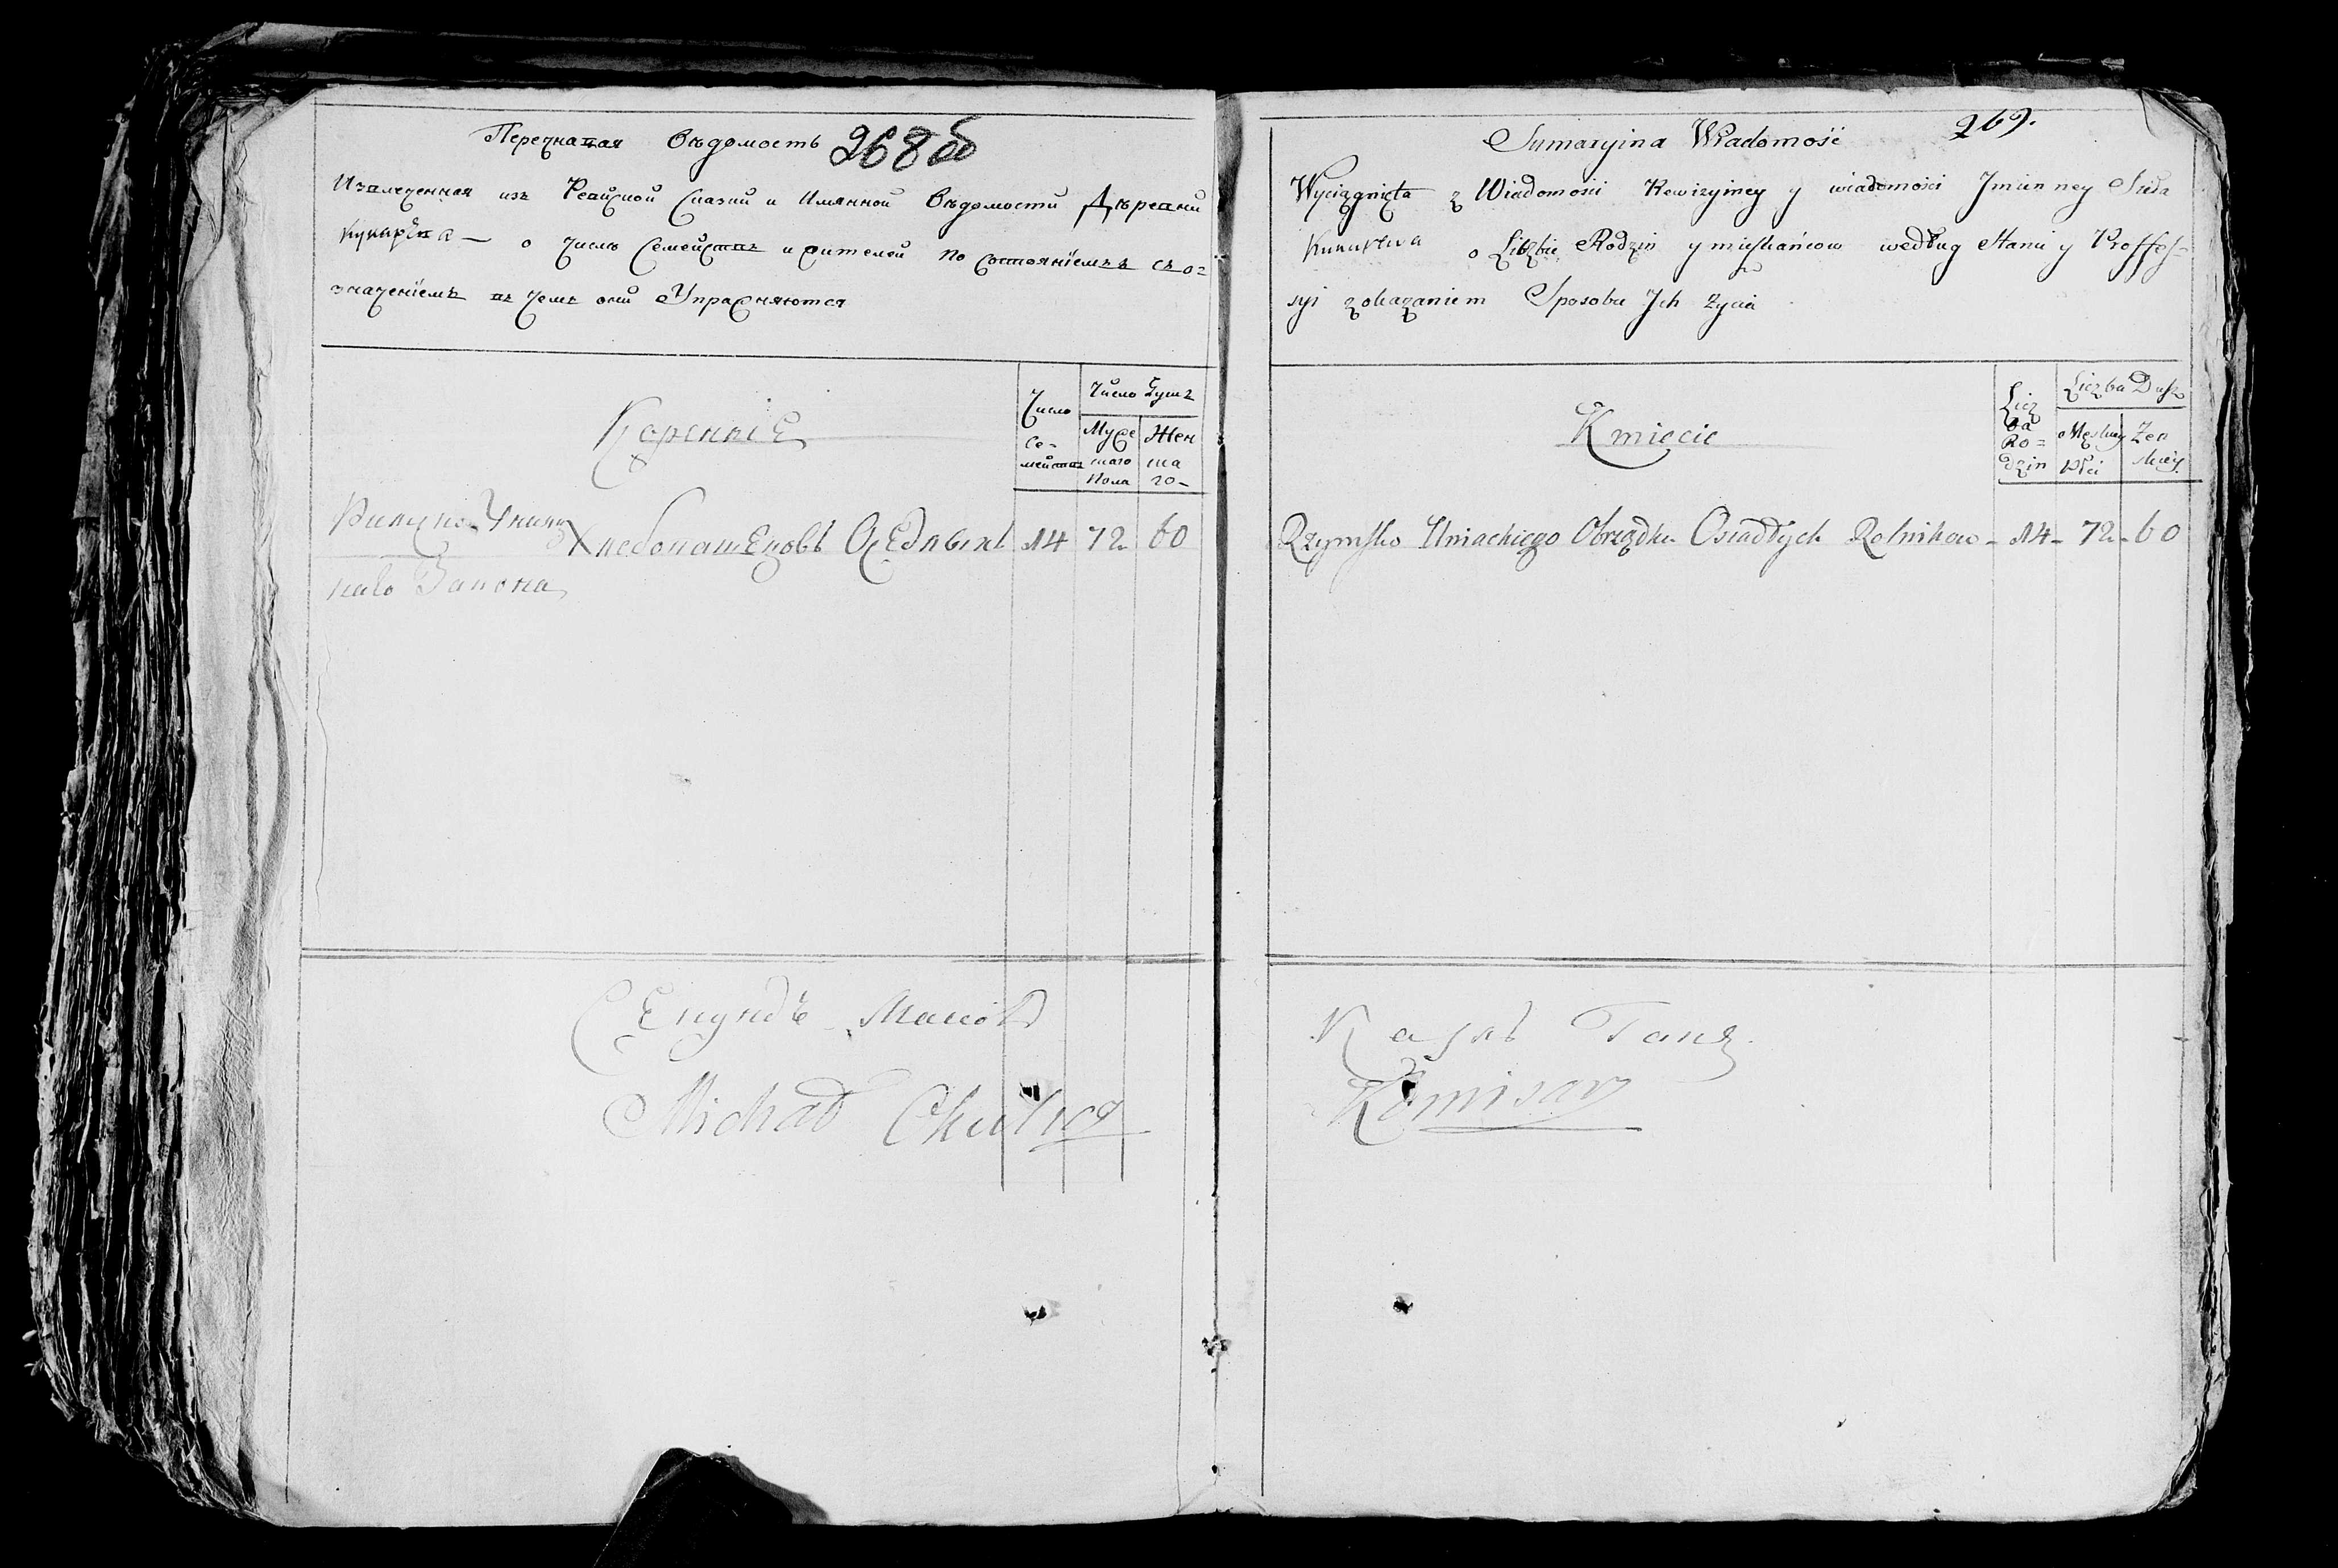 Перечнавая Вѣдомость 268об
Извлеченная изъ Ревиской Сказки и Имянной Вѣдомости Дѣревни
о числѣ Семействъ и жителей по состояніемъ съо=
значеніемъ въ чемъ они Упражняются
Число
Се-
мействъ
Число Душъ
Мужескаго
Пола
Жен
ска
го-
Коренныє
Римско Униц
каго Закона
Хлебопашецовъ Осєдлыхъ 14 72 60
Секундъ Маиоръ
Michał
269.
Sumaryina Wiadomość
Wyciągnięta z Wiadomości Rewizyiney y wiadomości Jmien ney Sioła
o Liczbie Rodzin y mieszkańcow według Stanu y Proffes=
syi z okazaniem Sposobu Jch życia
Licz
ba
Ro=
dzin
Liczba Dusz
Męskiey
Płci
Żeń
skiey
Kmiecie
Rzymsko Uniackiego Obrządku Osiadłych Rolnikow - 14 - 72 - 60
Карлъ
Komisarz